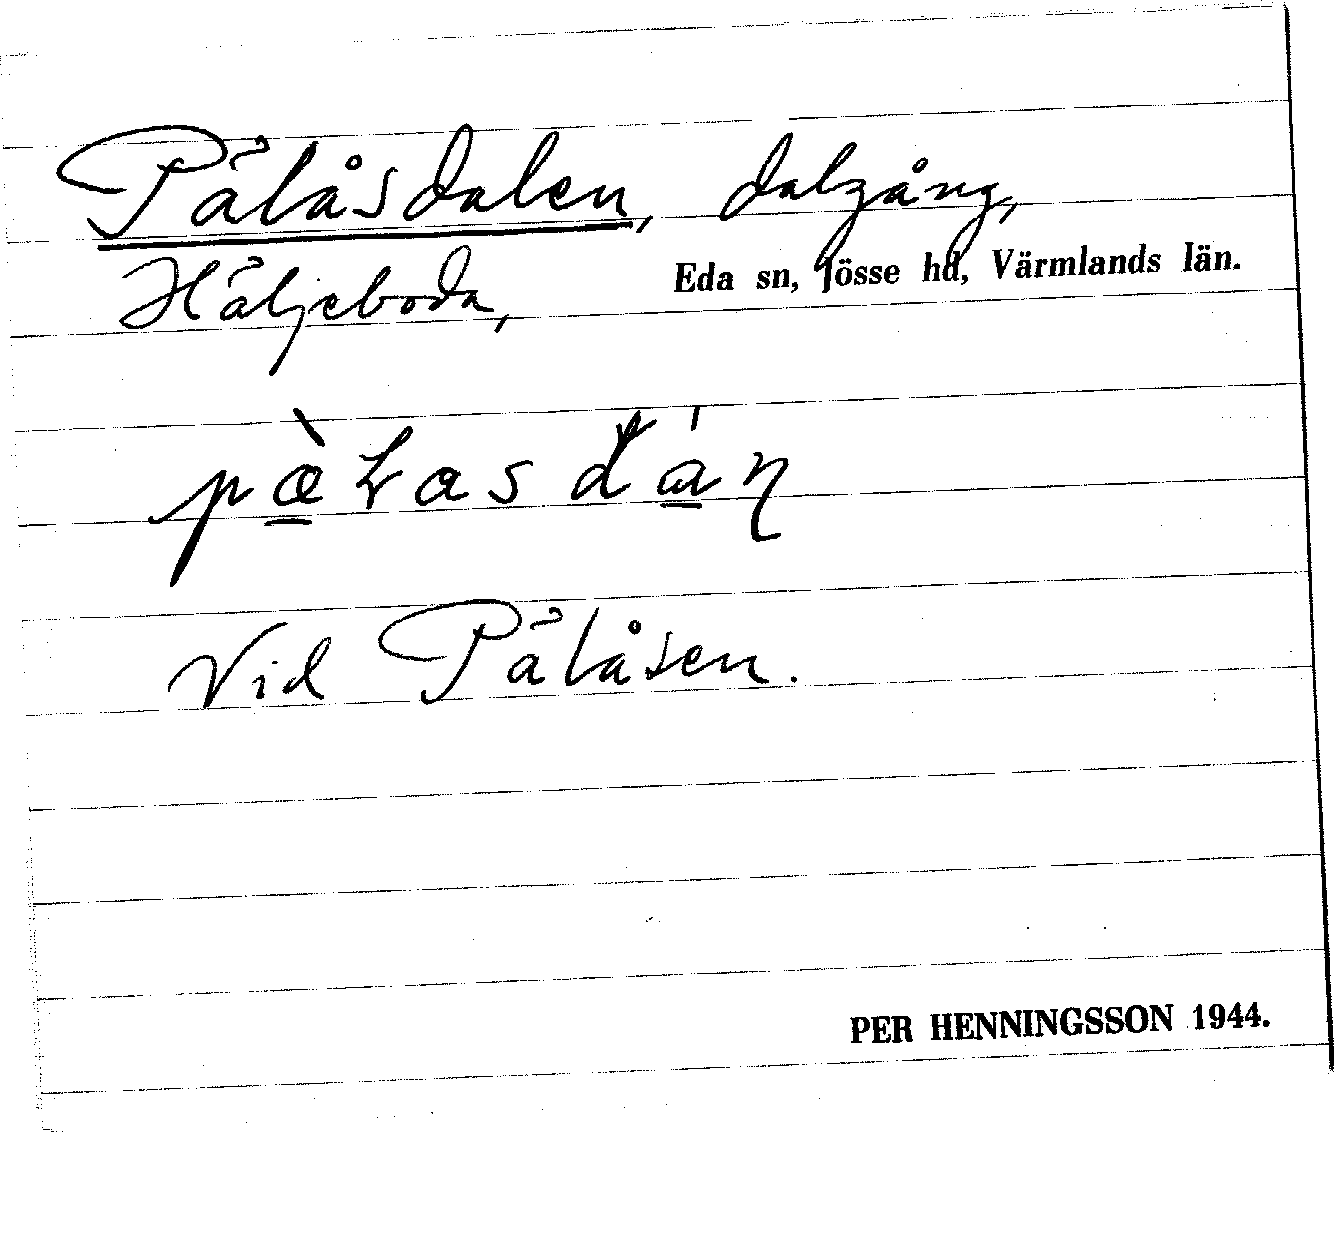 Pälåsdalen, dalgång,
Häljeboda, Eda sn, Jösse hd, Värmlands län.
Vid Pälåsen.
PER HENNINGSSON 1944.